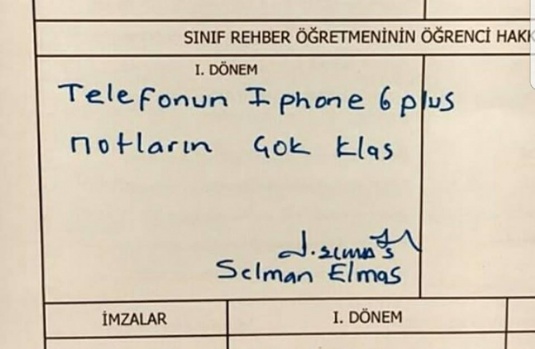 SINIF REHBER ÖĞRETMENİNİN ÖĞRENCİ HAKK
I. DÖNEM
Telefonun Iphone 6 plus
notların Çok klas
Selman Elmas
İMZALAR
I. DÖNEM